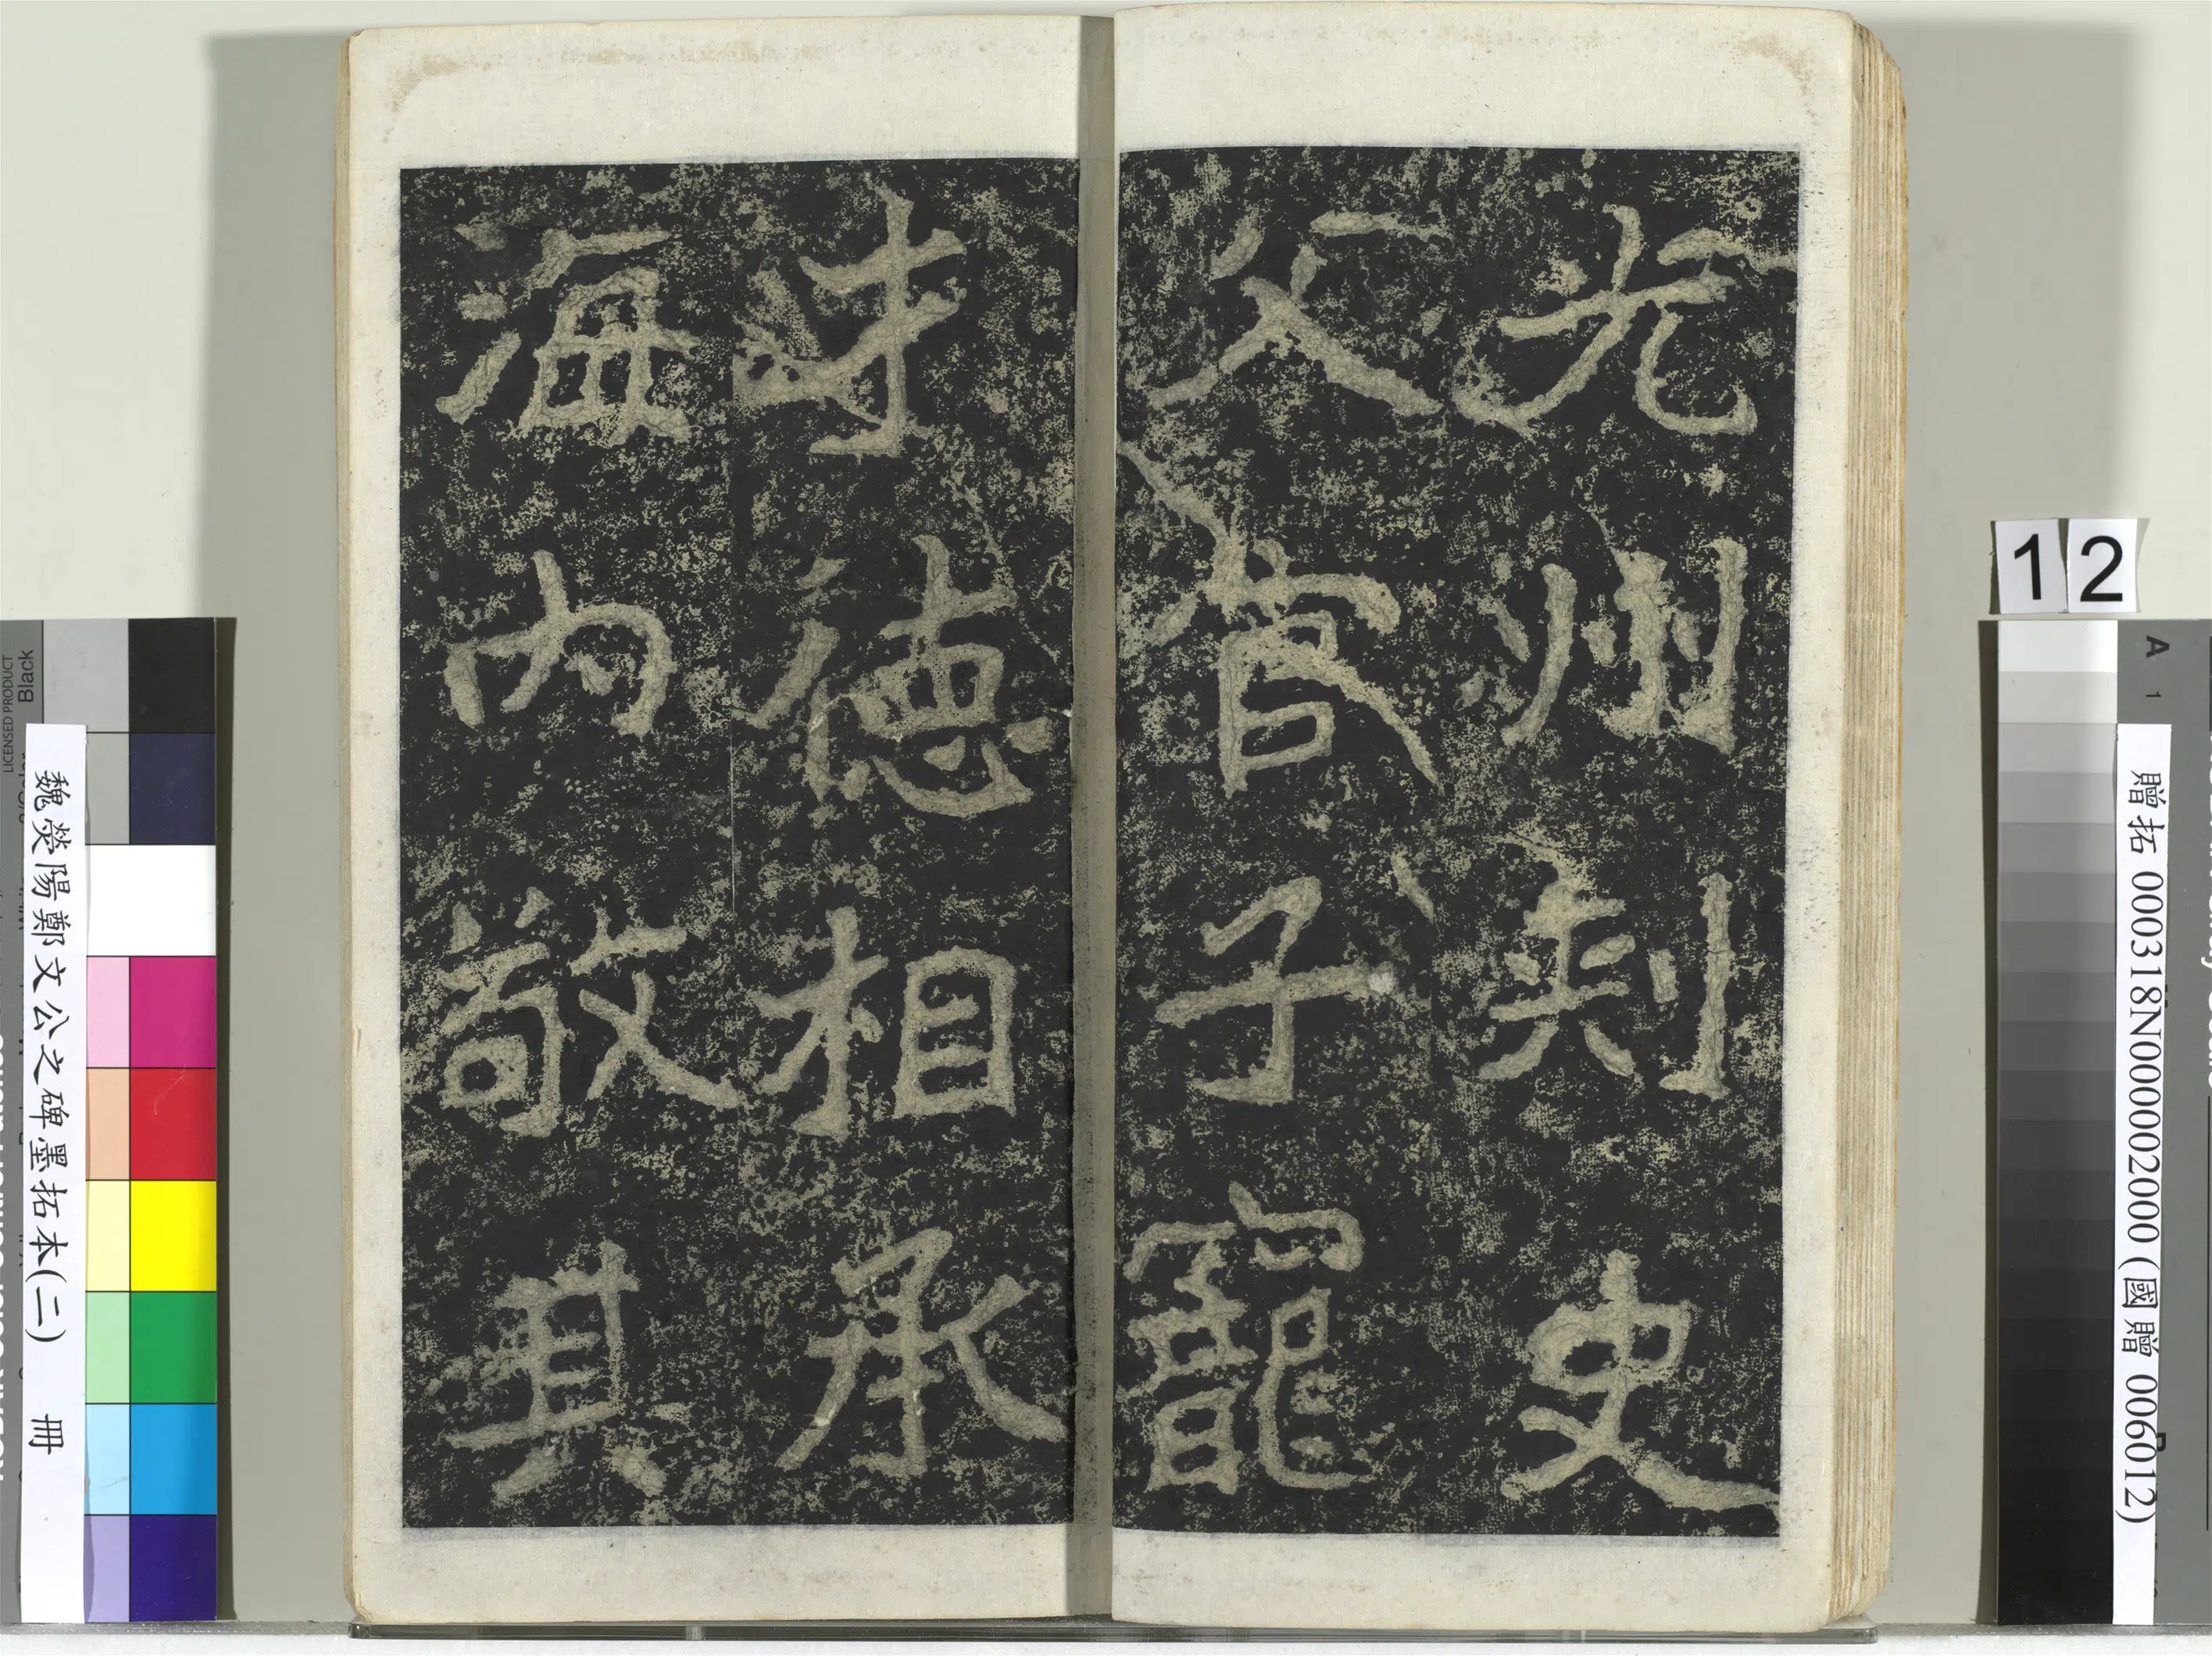 光州刺史
父官子寵
才德相承
海內敬其
12
魏熒陽鄭文公之碑墨拓本(二) 冊
贈拓 000318N000002000 (國贈 006012)
LICENSED PRODUCT
Black
A 1